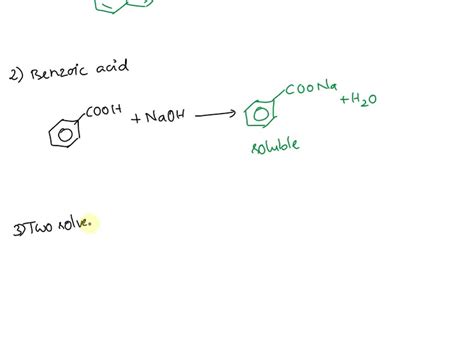 2) Benzoic acid
COOH + NaOH → COONa + H2O
soluble
3) Two solve